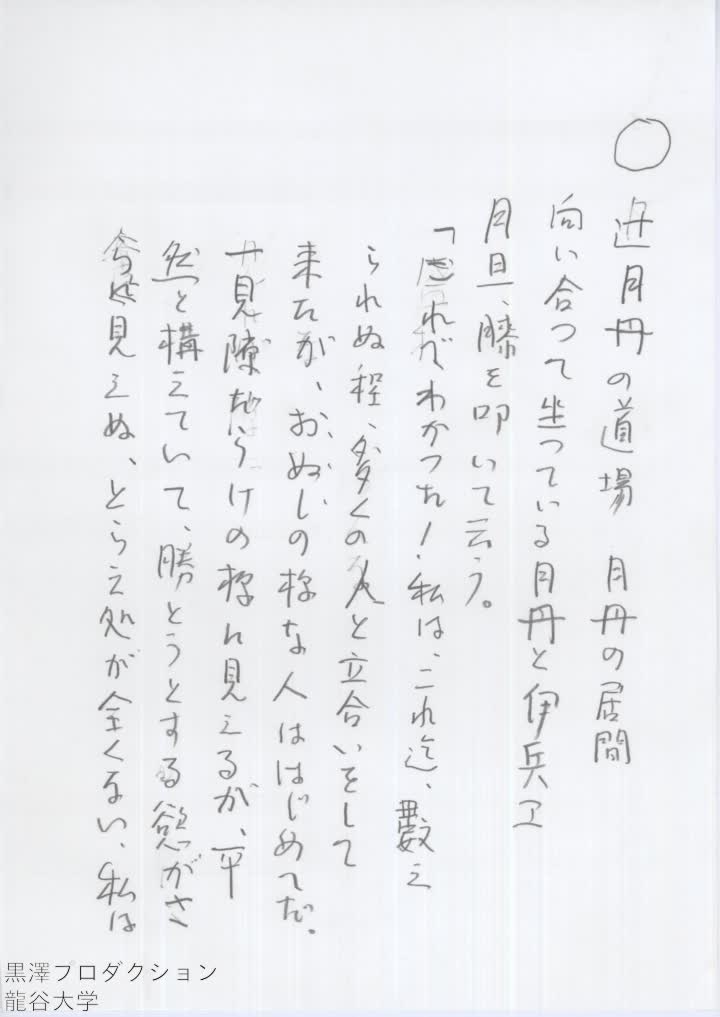 ○
辻月丹の道場　月丹の居間
向い合つて坐つている月丹と伊兵ヱ
月旦、膝を叩いて云う。
「それがわかつた！私は、これ迄、数え
られぬ程、多くの人と立合いをして
来たが、おぬしの様な人ははじめてだ。
一見隙だらけの様に見えるが、平
然と構えていて、勝とうとする慾がさ
見えぬ、とらえ処が全くない、私は
黒澤プロダクション
龍谷大学